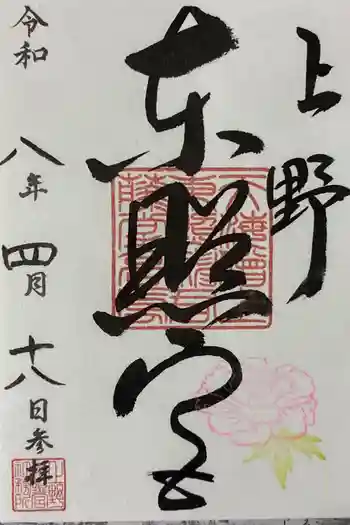 上野
東照宮
令和八年四月十八日参拝